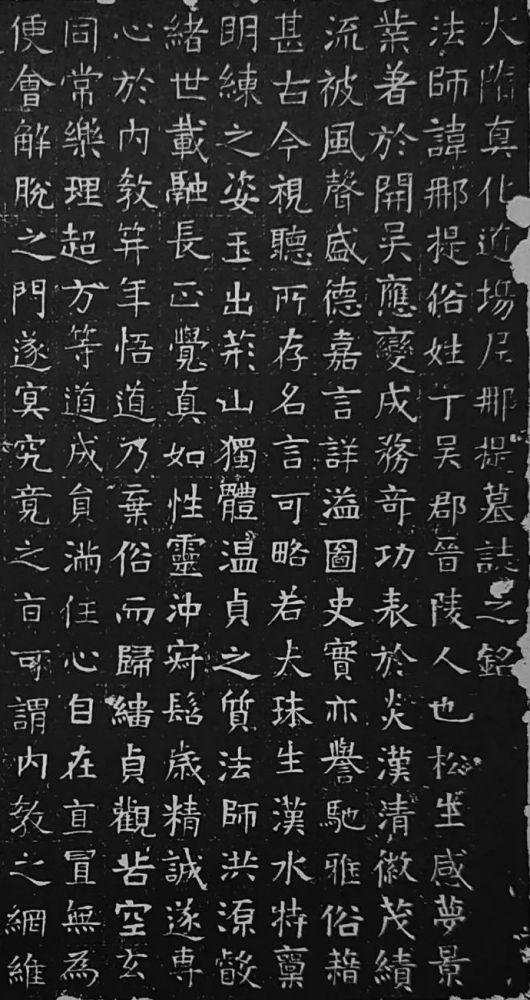 大隋真化道場尼那提墓誌之銘
法師諱那提俗姓丁吳郡晉陵人也松生感夢景
業著於開吳應變成務奇功表於炎漢清徽茂績
流被風聲盛德嘉言詳溢圖史實亦譽馳雅俗藉
甚古今視聽所存名言可略若夫珠生漢水特稟
明練之姿玉出荊山獨體温貞之質法師洪源濬
緒世載融長正覺真如性靈沖寂髫歲精誠遂專
心於內教笄年悟道乃棄俗而歸緇貞觀苦空玄
同常樂理超方等道成員滿任心自在直置無為
便會解脫之門遂冥究竟之旨可謂內教之網維